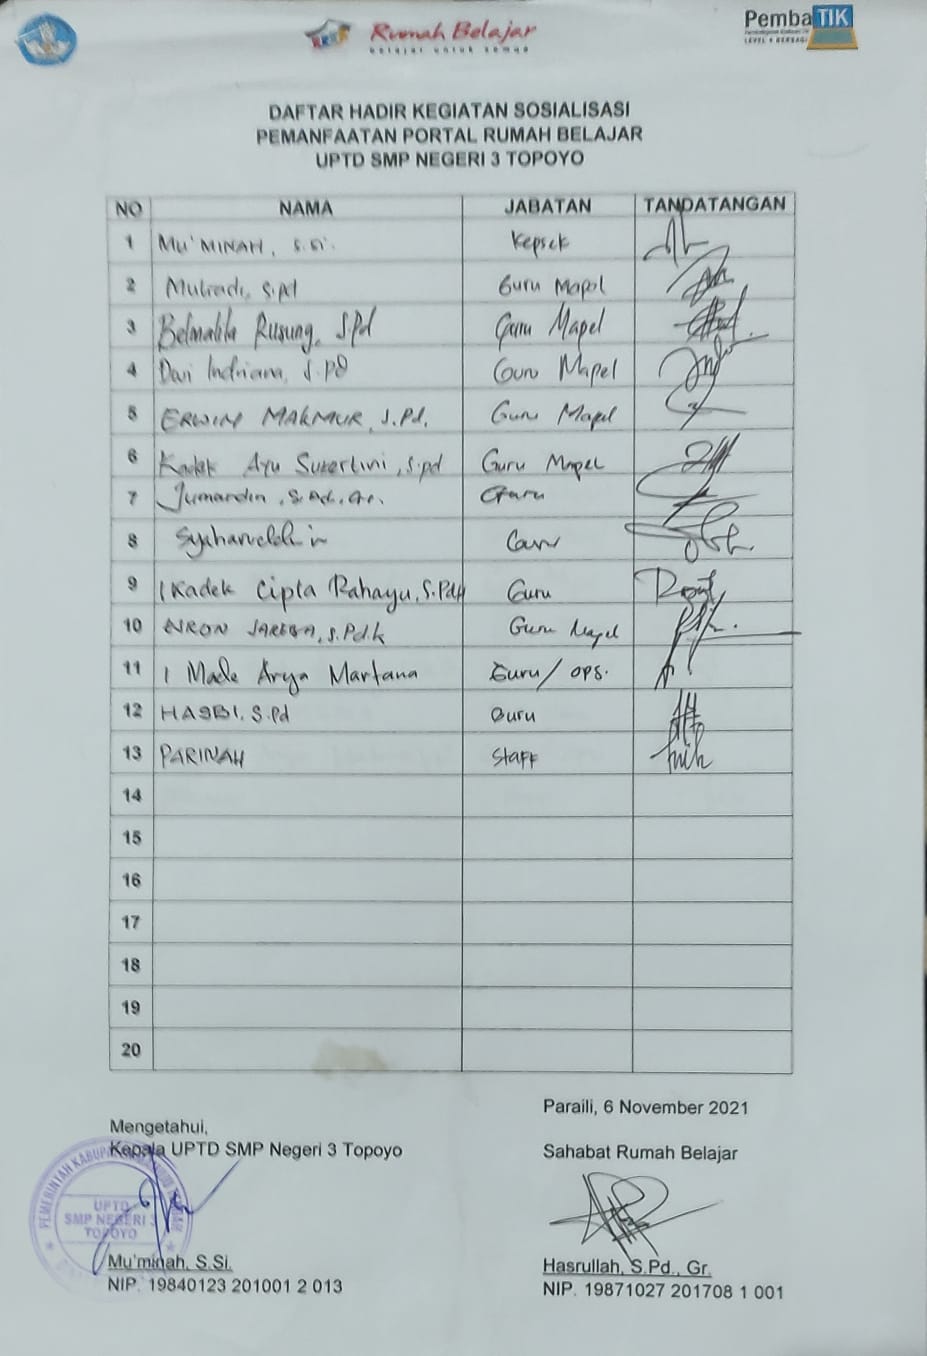 Rumah Belajar
belajar untuk semua
PembaTIK
LEVEL 4 BERBAGI
DAFTAR HADIR KEGIATAN SOSIALISASI
PEMANFAATAN PORTAL RUMAH BELAJAR
UPTD SMP NEGERI 3 TOPOYO
NO NAMA JABATAN TANDATANGAN
1 MU'MINAH, S.Si. Kepsek
2 Mulradi, S.Pd Guru Mapel
3 Belmalila Rusung, S.Pd Guru Mapel
4 Devi Indriana, S.Pd Guru Mapel
5 ERWIN MAKMUR, S.Pd. Guru Mapel
6 Kadek Ayu Sukertini, S.pd Guru Mapel
7 Jumardin, Guru
8 Syaharuddin Guru
9 I Kadek Cipta Rahayu, S.PdH Guru
10 S.Pd.k Guru Mapel
11 I Made Arya Martana Guru/ OPS.
12 HASBI, S.Pd Guru
13 PARINAH Staff
14
15
16
17
18
19
20
Paraili, 6 November 2021
Mengetahui,
Kepala UPTD SMP Negeri 3 Topoyo Sahabat Rumah Belajar
PEMERINTAH KABUPATEN
UPTD
SMP NEGERI 3
TOPOYO
Mu'minah, S.Si. Hasrullah, S.Pd., Gr.
NIP. 19840123 201001 2 013 NIP. 19871027 201708 1 001